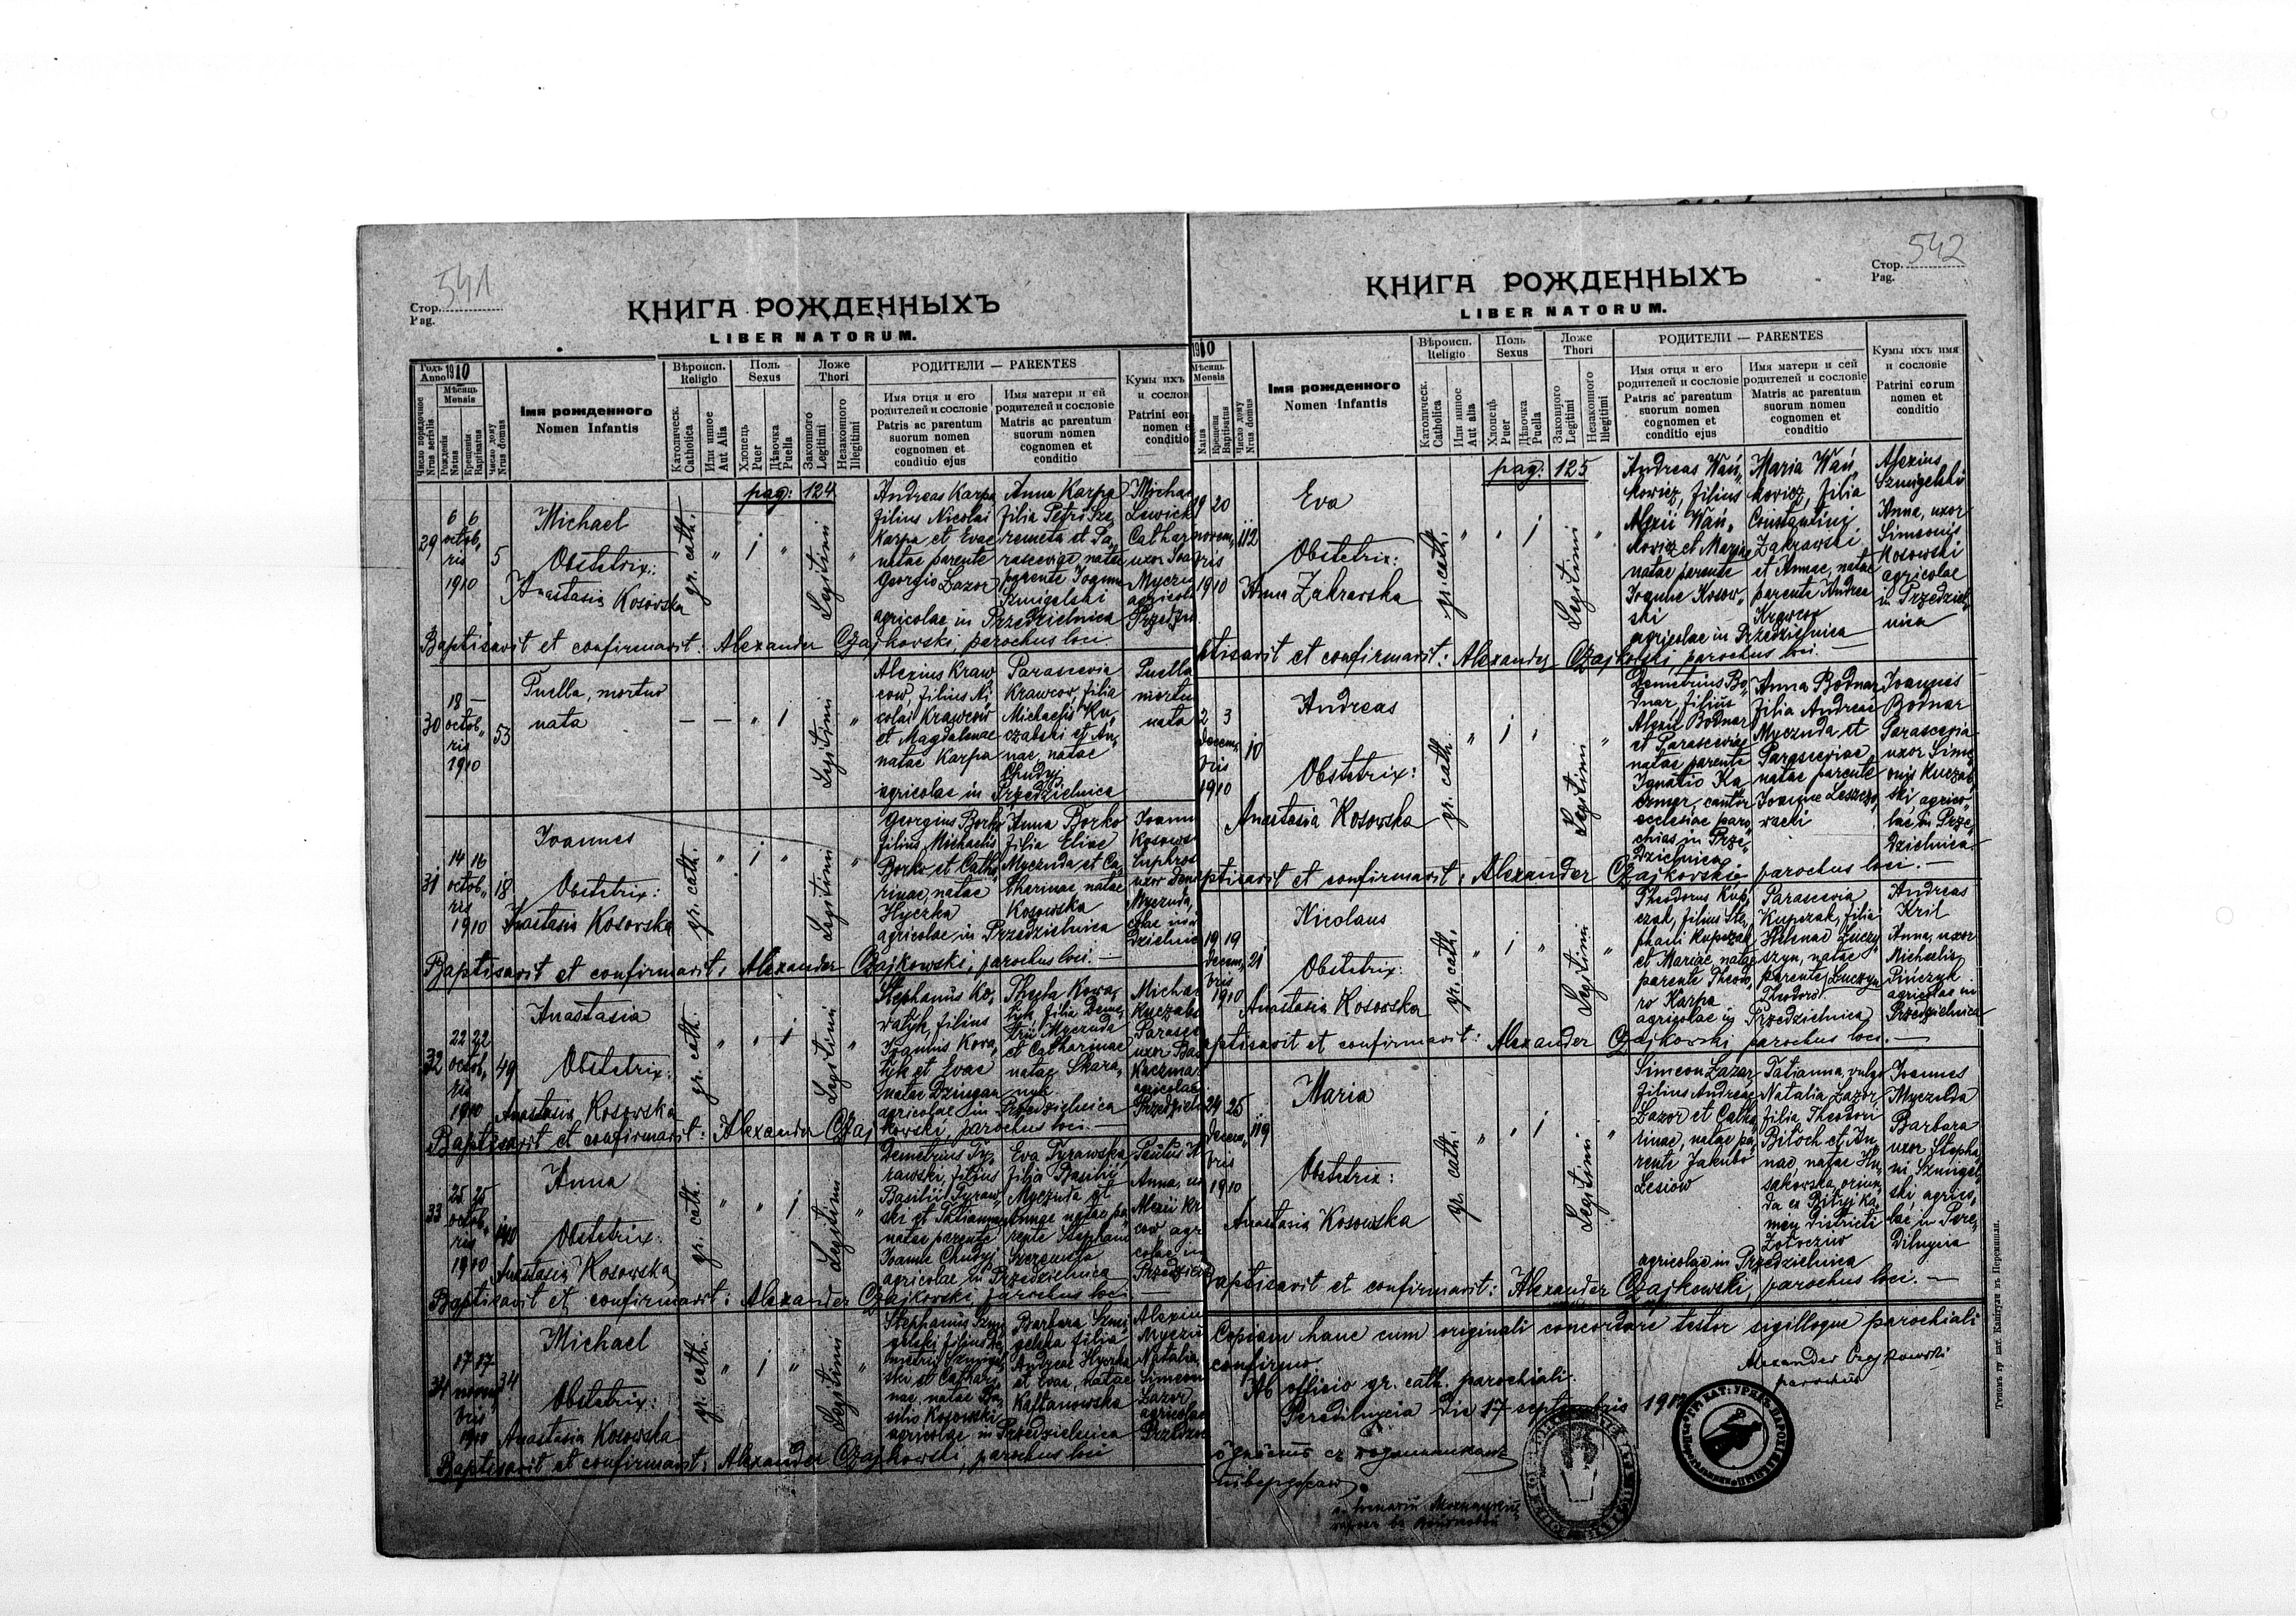 541
Стор.
Pag.
КНИГА РОЖДЕННЫХЪ
LIBER NATORUM.
Годъ Anno 1910
Мѣсяць
Mensis
Число порядочное
Nrus serialis
Рожденія
Natus
Крещенія
Baptisatus
Число дому
Nrus domus
Імя рожденного
Nomen Infantis
Вѣроисп.
Religio
Католическ.
Catholica
Или инное
Aut Alia
Поль
Sexus
Хлопець
Puer
Дѣвочка
Puella
Ложе
Thori
Законного
Legitimi
Незаконного
Illegitimi
РОДИТЕЛИ — PARENTES
Имя отця и его
родителей и сословіе
Patris ac parentum
suorum nomen
cognomen et
conditio ejus
Имя матери и ей
родителей и сословіе
Matris ac parentum
suorum nomen
cognomen et
conditio
Кумы ихъ
и сослов
Patrini eor
nomen e
conditio
pag: 124
29
6 6
octob„
ris
1910
5
Michael
Obstetrix:
Anastasia Kosowska
gr. cath.
„ 1 „
Legitimi
„
Andreas Karpa
filius Nicolai
Karpa et Evae
natae parente
Georgio Lazor
Anna Karpa
filia Petri Sze„
remeta et Pa„
rasceviae, natae
parente Joanne
Szmigelski
agricolae in Przedzielnica
Michae
Lewick
Cathar
uxor Joa
Myczu
agricol
Przedzie
Baptisavit et confirmavit: Alexander Czajkowski, parochus loci.
30
18 —
octob„
ris
1910
53
Puella, mortuo
nata
— — „ 1
Legitimi
„
Alexius Kraw„
cow, filius Ni„
colai Krawcow
et Magdalenae
natae Karpa
Parascevia
Krawcow, filia
Michaelis Ku„
czabski et An„
nae, natae
Chudyj
agricolae in Przedzielnica
Puella
mortu
nata
31
14 16
octob„
ris
1910
18
Joannes
Obstetrix:
Anastasia Kosowska
gr. cath.
„ 1 „
Legitimi
„
Georgius Borko
filius Michaelis
Borko et Catha„
rinae, natae
Hyczka
Anna Borko
filia Eliae
Myczuda et Ca„
therinae natae
Kosowska
agricolae in Przedzielnica
Joann
Kosows
Euphros
uxor Deme
Myczuda,
colae in
Dzielnic
Baptisavit et confirmavit: Alexander Czajkowski, parochus loci. —
32
22 22
octob„
ris
1910
49
Anastasia
Obstetrix:
Anastasia Kosowska
gr. cath.
„ „ 1
Legitimi
„
Stephanus Ko„
watyk, filius
Joannis Kowa„
tyk et Evae
natae Dzingan
Thecla Kowa„
tyk, filia Deme„
trii Myczuda
et Catharinae
natae Skara„
nyk
agricolae in Przedzielnica
Michae
Kuczabs
Parasce
uxor Bas
Kaczmar
agricolae
Przedziel
Baptisavit et confirmavit: Alexander Czajkowski, parochus loci. —
33
25 25
octob„
ris
1910
140
Anna
Obstetrix:
Anastasia Kosowska
gr. cath.
„ „ 1
Legitimi
„
Demetrius Ty„
rawski, filius
Basilii Tyraw„
ski et Tatiannae
natae parente
Joanne Chudyj
Eva Tyrawska
filia Basilii
Myczuda et
Annae natae pa„
rente Stephano
Szeremeta
agricolae in Przedzielnica
Anna, ux
Alexii Kr
cow, agri
colae in
Przedziel
Baptisavit et confirmavit: Alexander Czajkowski, parochus loci —
34
17 17
novem„
bris
1910
34
Michael
Obstetrix:
Anastasia Kosowska
gr. cath.
„ 1 „
Legitimi
„
Stephanus Szmi„
gelski filius De„
metrii Szmigel„
ski et Cathari„
nae, natae Ba„
silio Kosowski
Barbara Szmi„
gelska filia
Andreae Hyczka
et Evae, natae
Kaftanowska
agricolae in Przedzielnica
Alexiu
Myczu
Natalia,
Simeon
Lazor
agricolae
Przedzie
Baptisavit et confirmavit: Alexander Czajkowski, parochus loci
542
Стор.
Pag.
КНИГА РОЖДЕННЫХЪ
LIBER NATORUM.
1910
Мѣсяць
Mensis
Natus
Крещенія
Baptisatus
Число дому
Nrus domus
Імя рожденного
Nomen Infantis
Вѣроисп.
Religio
Католическ.
Catholica
Или инное
Aut alia
Поль
Sexus
Хлопець
Puer
Дѣвочка
Puella
Ложе
Thori
Законного
Legitimi
Незаконного
Illegitimi
РОДИТЕЛИ — PARENTES
Имя отця и его
родителей и сословіе
Patris ac parentum
suorum nomen
cognomen et
conditio ejus
Имя матери и сей
родителей и сословіе
Matris ac parentum
suorum nomen
cognomen et
conditio
Кумы ихъ имя
и сословіе
Patrini eorum
nomen et
conditio
pag: 125
19 20
novem„
bris
1910
112
Eva
Obstetrix:
Anna Zakrawska
gr. cath.
„ „ 1
Legitimi
„
Andreas Wań„
kowicz, filius
Alexii Wań„
kowicz et Mariae
natae parente
Joanne Kosow„
ski
Maria Wań„
kowicz, filia
Constantini
Zakrawski
et Annae, natae
parente Andrea
Krawcow
agricolae in Przedzielnica
Alexius
Szmigelski
Anna, uxor
Simeonis
Kosowski
agricolae
in Przedziel„
nica
ptisavit et confirmavit: Alexander Czajkowski, parochus loci. —
2 3
Decem„
bris
1910
10
Andreas
Obstetrix:
Anastasia Kosowska
gr. cath.
„ 1 „
Legitimi
„
Demetrius Bo„
dnar, filius
Alexii Bodnar
et Parasceviae
natae parente
Ignatio Ka„
czmar, cantor
ecclesiae paro„
chias in Prze„
dzielnica
Anna Bodnar
filia Andreae
Myczuda et
Parasceviae
natae parente
Joanne Leszczo„
wacki
Joannes
Bodnar
Parascevia
uxor Sime„
onis Kuczab„
ski agrico„
lae in Prze„
dzielnica
ptisavit et confirmavit: Alexander Czajkowski parochus loci. —
19 19
Decem„
bris
1910
21
Nicolaus
Obstetrix:
Anastasia Kosowska
gr. cath.
„ 1 „
Legitimi
„
Theodorus Kup„
czak, filius Ste„
phani Kupczak
et Mariae, natae
parente Theodo„
ro Karpa
Parascevia
Kupczak, filia
Helenae Łuczy„
szyn, natae
parente Łuczyn
Theodoro
agricolae in Przedzielnica
Andreas
Kril
Anna, uxor
Michaelis
Pińczyk
agricolae in
Przedzielnica
aptisavit et confirmavit: Alexander Czajkowski parochus loci. —
24 25
Decem„
bris
1910
119
Maria
Obstetrix:
Anastasia Kosowska
gr. cath.
„ „ 1
Legitimi
„
Simeon Lazar,
filius Andreae
Lazor et Catha„
rinae, natae pa„
rente Jakubo
Lesiow
Tatianna, vulgo
Natalia Lazor,
filia Theodori
Bitoch et An„
nae, natae Hu„
sakowska, oriun„
da ex Bityj Ka„
mień Districti
Złoczów
agricolae in Przedzielnica
Joannes
Myczulda
Barbara
uxor Stepha„
ni Szmigel„
ski, agrico„
lae in Pere„
dilnycia
aptisavit et confirmavit: Alexander Czajkowski, parochus loci. —
Copiam hanc cum originali concordare testor sigilloque parochiali
confirmo
Alexander Czajkowski
parochus
Ab officio gr. cath. parochiali.
Peredilnycia die 17 septembris